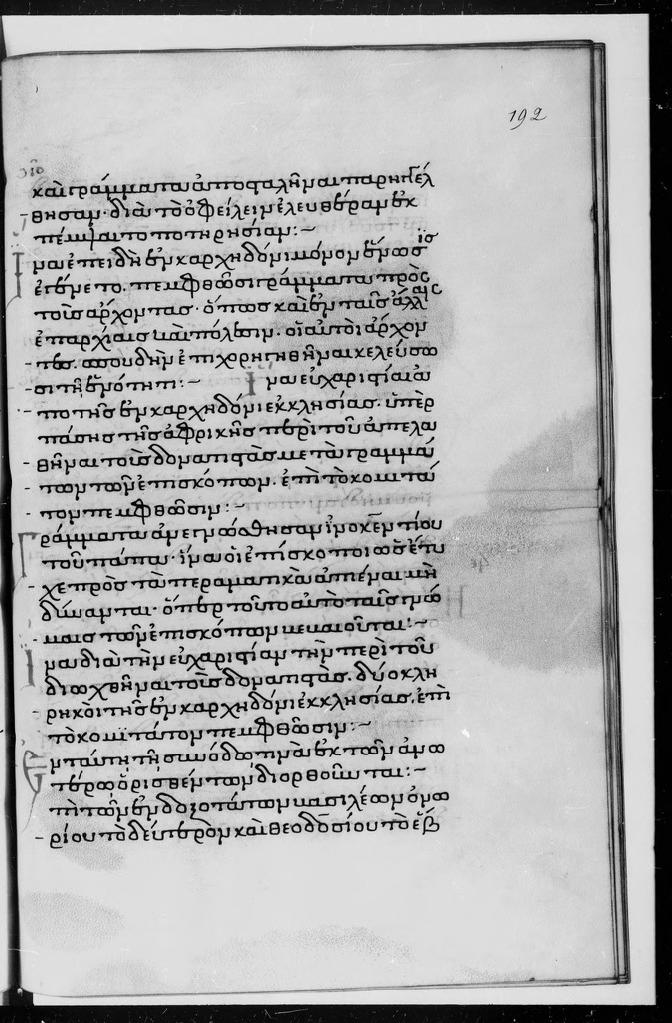 192
καὶ γράμματα ἀποσταλῆναι παρηγγέλ
θησαν· διὰ τὸ ὀφείλειν ἐλευθέραν ἐκ
πέμψαι τοποτηρησίαν:~
Ἵνα ἐπειδὴ ἐν καρχηδόνι μόνον ἕνωσις
ἐγένετο. πεμφθῶσι γράμματα πρὸς
τοὺς ἄρχοντας. ὅπως καὶ ἐν ταῖς ἄλλαις
ἐπαρχίαις καὶ πόλεσιν. οἱ αὐτοὶ ἄρχον
τες. σπουδὴν ἐπιχορηγηθῆναι κελεύσω
σι τῇ ἑνότητι:~ Ἵνα εὐχαριστίαι ἀ
πὸ τῆς ἐν καρχηδόνι ἐκκλησίας. ὑπὲρ
πάσης τῆς ἀφρικῆς περὶ τοῦ ἀπελα
θῆναι τοὺς δονατιστὰς μετὰ γραμμά
των τῶν ἐπισκόπων. ἐπὶ τὸ κομιτά
τον πεμφθῶσιν:~
Γράμματα ἀνεγνώσθησαν ἰνοκεντίου
τοῦ πάπα. ἵνα οἱ ἐπίσκοποι ὡς ἔτυ
χε πρὸς τὰ περαματικὰ ἀπιέναι μὴ
δύνανται. ὅπερ τοῦτο αὐτὸ ταῖς γνώ
μαις τῶν ἐπισκόπων βεβαιοῦται:~
Ἵνα διὰ τὴν εὐχαριστίαν τὴν περὶ τοῦ
διωχθῆναι τοὺς δονατιστὰς. δύο κλη
ρικοὶ τῆς ἐν καρχηδόνι ἐκκλησίας. ἐπὶ
τὸ κομιτάτον πεμφθῶσιν:~
Ἐν ταύτῃ τῇ συνόδῳ τινὰ ἐκ τῶν ἀνω
τέρω ὁρισθέντων διορθοῦνται:~
Ἐπὶ τῶν ἐνδοξοτάτων βασιλέων ὀνω
ρίου τὸ δεύτερον καὶ θεοδοσίου τὸ ἕβ